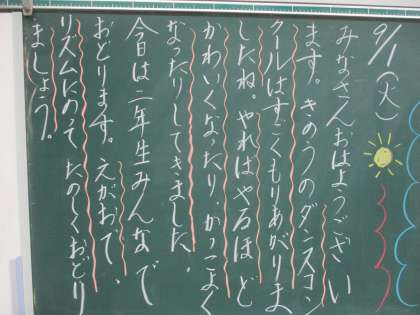 9/1(火)
みなさんおはようござい
ます。きのうのダンスコン
クールはすごくもりあがりま
したね。やればやるほど
かわいくなったり、かっこよく
なったりしてきました。
今日は二年生みんなで
おどります。えがおで、
リズムにのってたのしくおどり
ましょう。